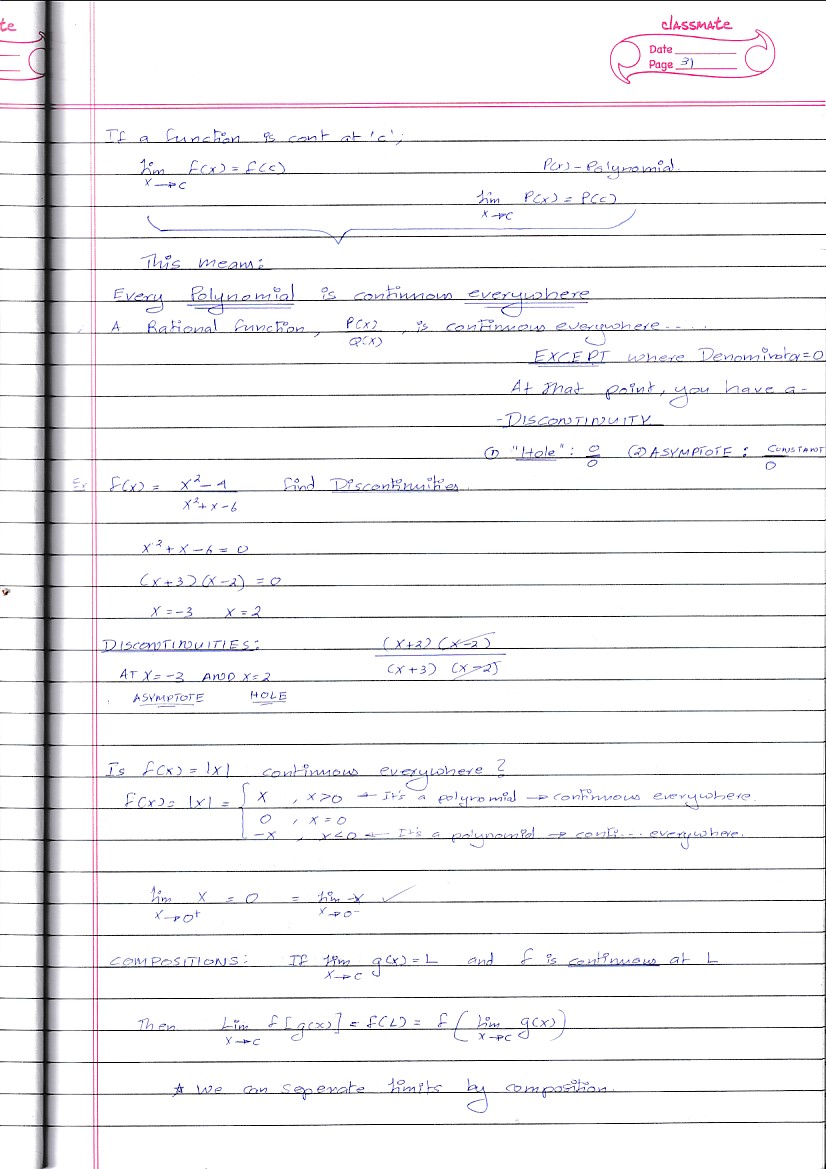 te
classmate
Date
Page 31
If a function is cont at 'c';
lim x→c f(x) = f(c)
P(x) - Polynomial.
lim x→c P(x) = P(c)
This means:
Every Polynomial is continuous everywhere
A Rational function, P(x)/Q(x), is continuous everywhere.....
EXCEPT where Denominator=0
At that point, you have a-
-DISCONTINUITY
(1) "Hole": 0/0 (2) ASYMPTOTE: CONSTANT/0
Ex f(x) = x²-4 / x²+x-6 find Discontinuities.
x²+x-6=0
(x+3)(x-2) = 0
x=-3 x=2
DISCONTINUITIES: (x+2)(x-2) / (x+3)(x-2)
AT x=-3 AND x=2
ASYMPTOTE HOLE
Is f(x) = |x| continuous everywhere?
f(x) = |x| = { x , x>0 ← It's a polynomial → continuous everywhere.
0 , x=0
-x , x<0 ← It's a polynomial → conti... everywhere.
lim x→0⁺ x = 0 = lim x→0⁻ -x ✓
COMPOSITIONS: If lim x→c g(x) = L and f is continuous at L
Then Lim x→c f[g(x)] = f(L) = f(lim x→c g(x))
* We can seperate limits by composition.